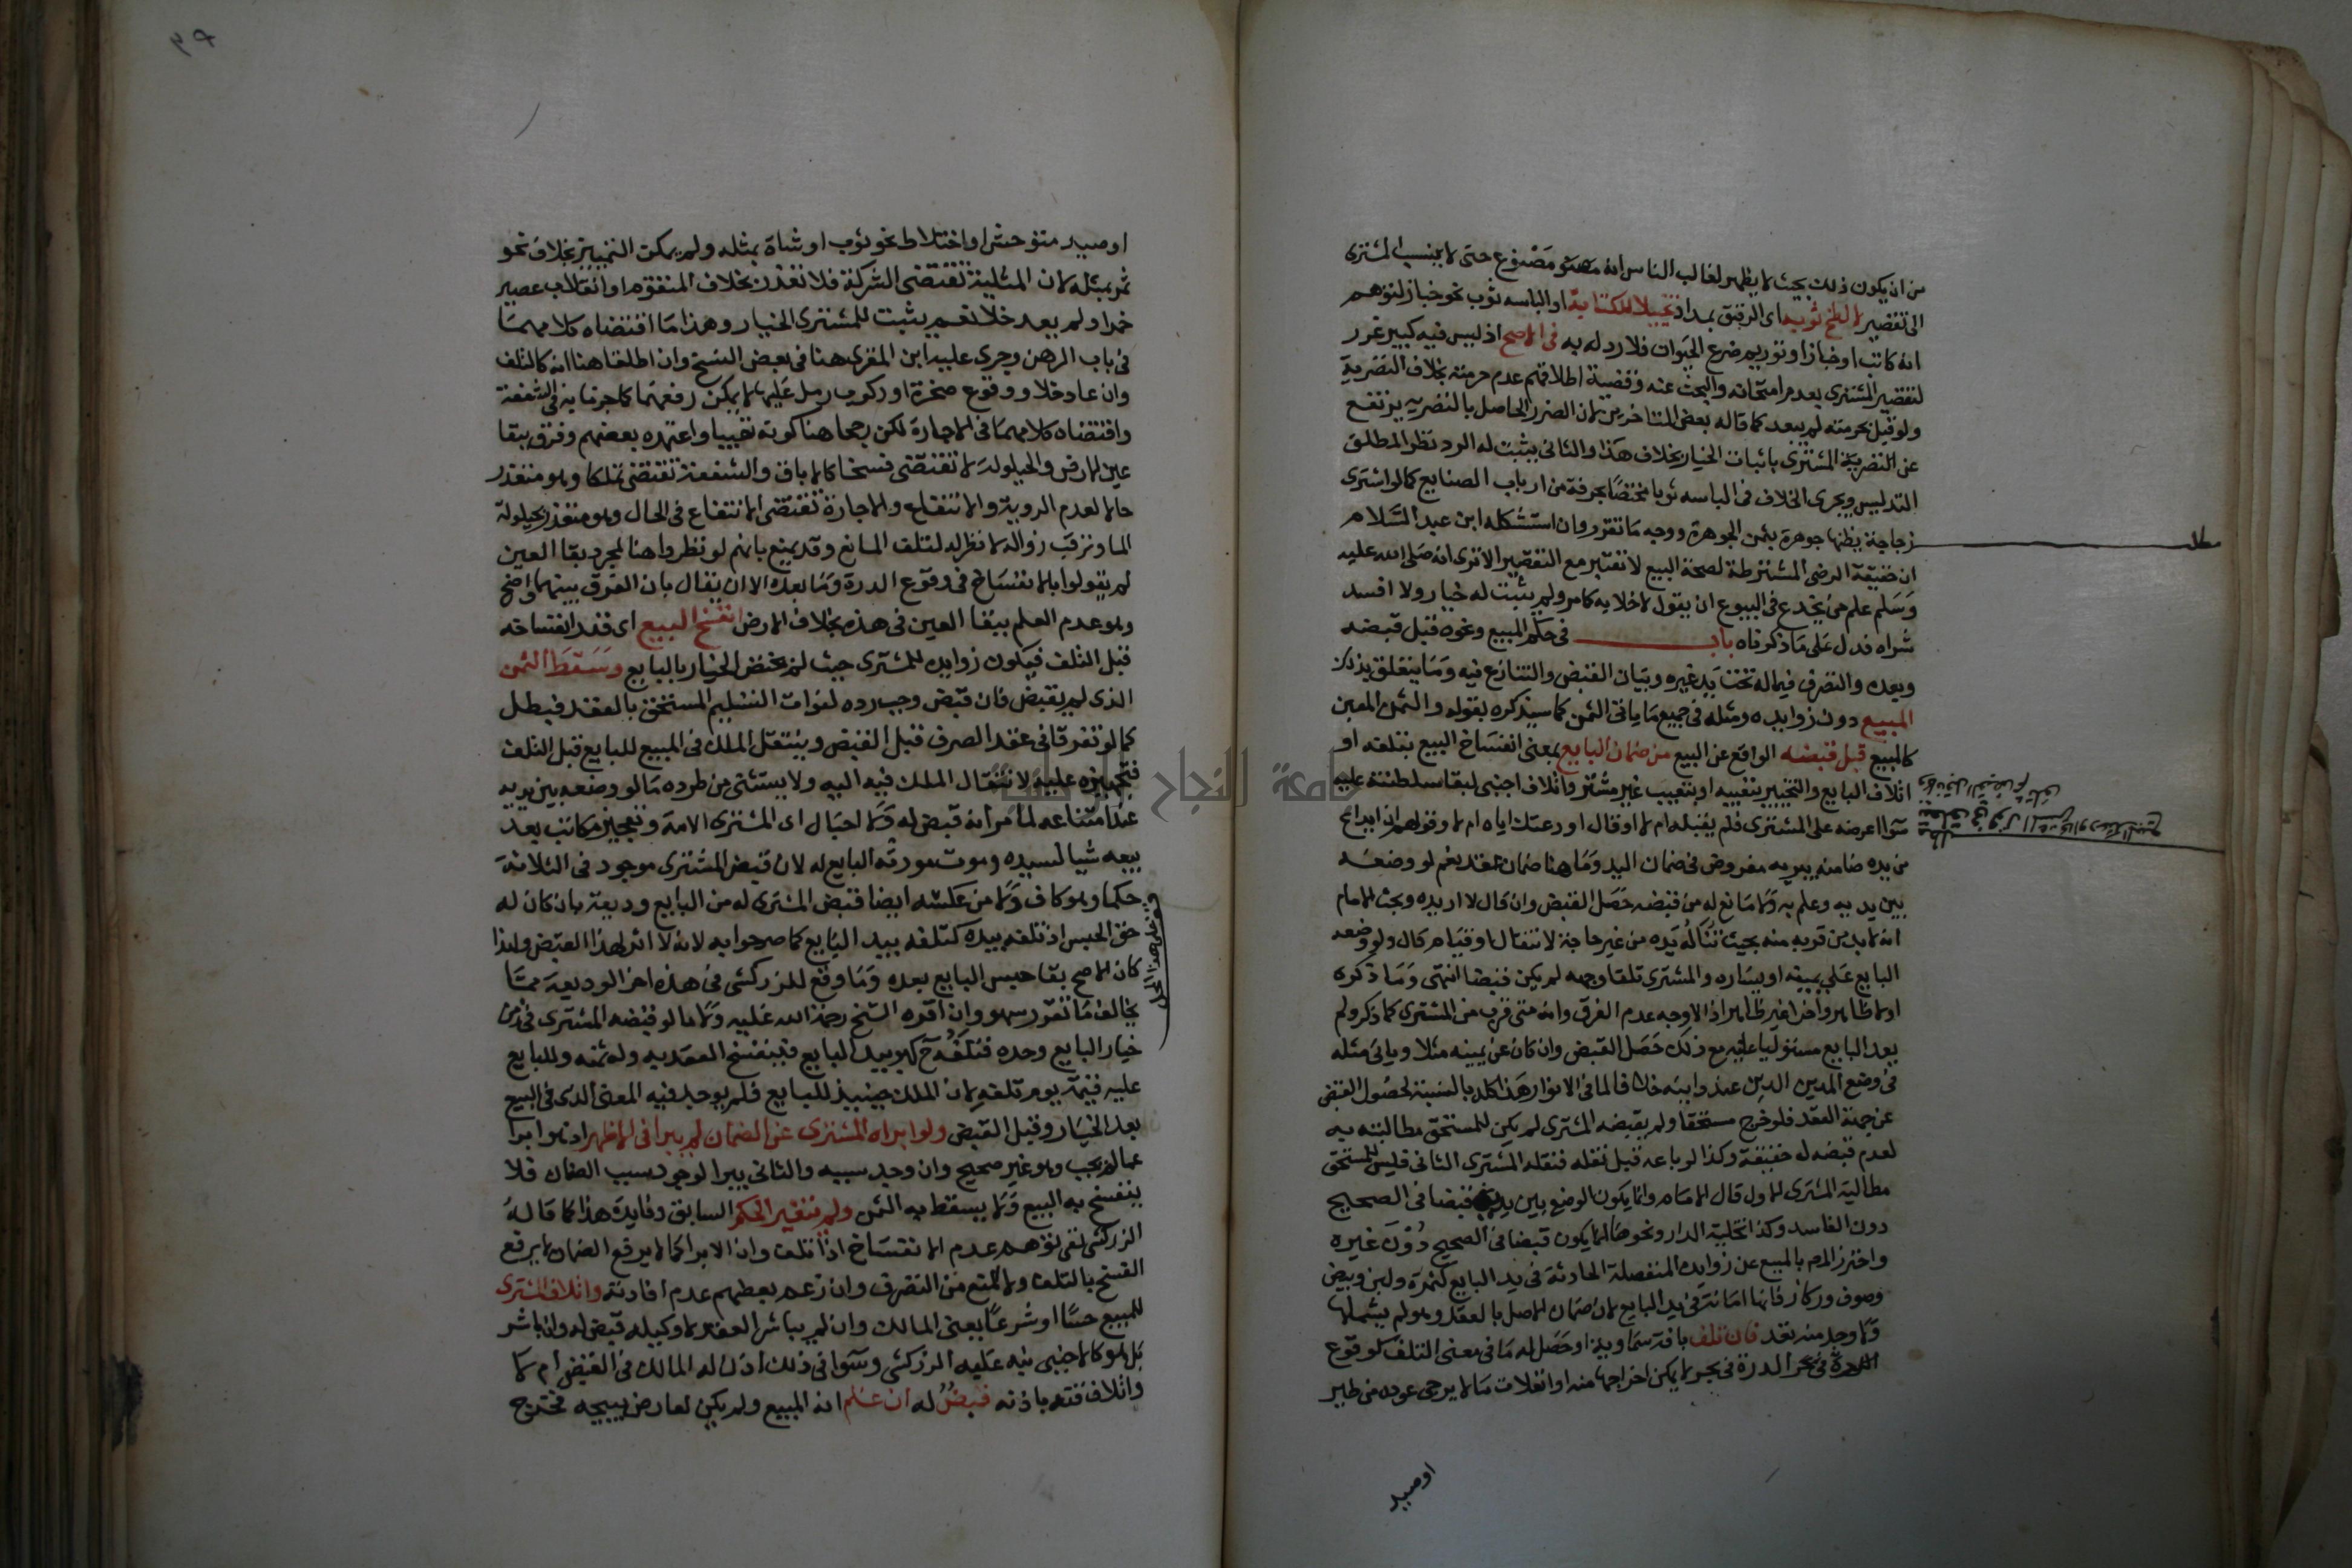 من ان يكون ذلك بحيث لا يظهر لغالب الناس انه مصنوع حتى لا ينسب المشترى
الى تقصير لا لطخ ثوبه اى الرقيق بمداد تخييلا لكتابة او الباسه ثوب نحو خباز ليوهم
انه كاتب او خباز او توريم ضرع الحيوان فلا رد له به فى الاصح اذ ليس فيه كبير غرر
لتقصير المشترى بعدم امتحانه والبحث عنه وقضية اطلاقهم عدم حرمته بخلاف التصرية
ولو قيل بحرمته لم يبعد كما قاله بعض المتاخرين لان الضرر الحاصل بالتصريه يرتفع
عن المشترى باثبات الخيار بخلاف هذا والثانى يثبت له الرد نظرا لمطلق
التدليس ويجرى الخلاف فى الباسه ثوبا مختصا بحرفة من ارباب الصنايع كما لو اشترى
زجاجة يظنها جوهرة بثمن الجوهرة ووجه ما تقرر وان استشكله ابن عبد السلام
ان حقيقة الرضى المشترطة لصحة البيع لا تعتبر مع التقصير الا ترى انه صلى الله عليه
وسلم علم من يخدع فى البيوع ان يقول لا خلابه كما مر ولم يثبت له خيار ولا افسد
شراه فدل على ما ذكرناه باب فى حكم المبيع ونحوه قبل قبضه
وبعده والتصرف فيما له تحت يد غيره وبيان القبض والتنازع فيه وما يتعلق بذلك
المبيع دون زوايده ومثله فى جميع ما ياتى الثمن كما سيذكره بقوله والثمن المعين
كالمبيع قبل قبضه الواقع عن البيع من ضمان البايع بمعنى انفساخ البيع بتلفه او
اتلاف البايع والتخيير بتعييبه او بتعييب غير مشتر واتلاف اجنبى لبقا سلطنته عليه
سوا اعرضه على المشترى فلم يقبله ام لا او قال اودعتك اياه ام لا وقولهم ان ايداع
من يده ضامنه يبريه مفروض فى ضمان اليد وما هنا ضمان عقد نعم لو وضعه
بين يديه وعلم به ولا مانع له من قبضه حصل القبض وان قال لا اريده وبحث الامام
انه لا بد من قربه منه بحيث تناله يده من غير حاجة لانتقال او قيام قال ولو وضعه
البايع على يمينه او يساره والمشترى تلقا وجهه لم يكن قبضا انتهى وما ذكره
اولا ظاهر واخرا غير ظاهر اذ الاوجه عدم الفرق وانه متى قرب من المشترى كما ذكر ولم
يعد البايع مستوليا عليه مع ذلك حصل القبض وان كان عن يمينه مثلا وياتى مثله
فى وضع المدين الدين عند دائنه خلافا لما فى الانوار هذا كله بالنسبة لحصول القبض
عن جهة العقد فلو خرج مستحقا ولم يقبضه المشترى لم يكن للمستحق مطالبته به
لعدم قبضه له حقيقة وكذا لو باعه قبل نقله فنقله المشترى الثانى فليس للمستحق
مطالبة المشترى الاول قال الامام وانما يكون الوضع بين يديه قبضا فى الصحيح
دون الفاسد وكذا تخلية الدار ونحوها انما يكون قبضا فى الصحيح دون غيره
واحترز المص بالمبيع عن زوايده المنفصلة الحادثة فى يد البايع كثمرة ولبن وبيض
وصوف وركاز فانها امانة فى يد البايع لان ضمان الاصل بالعقد وهو لم يشملها
ولا وجد منه تعد فان تلف بافة سماوية او حصل له ما فى معنى التلف كوقوع
الدرة فى بحر لا يمكن اخراجها منه او انفلات ما لا يرجى عوده من طير
اوصيد
مطلب
او صيد متوحش او اختلاط نحو ثوب او شاة بمثله ولم يمكن التمييز بخلاف نحو
تمر بمثله لان المثلية تقتضى الشركة فلا تعذر بخلاف المتقوم او انقلاب عصير
خمرا ولم يعد خلا نعم يثبت للمشترى الخيار وهذا ما اقتضاه كلامهما
فى باب الرهن وجرى عليه ابن المقرى هنا فى بعض النسخ وان اطلقا هنا انه كالتلف
وان عاد خلا ووقوع صخرة او ركوب رمل عليها لا يمكن رفعهما كما جزما به فى الشفعة
واقتضاه كلامهما فى الاجارة لكن رجحا هنا كونه تعييبا واعتمده بعضهم وفرق ببقا
عين الارض والحيلولة لا تقتضى فسخا كالاباق والشفعة تقتضى تملكا وهو متعذر
حالا لعدم الروية والانتفاع والاجارة تقتضى الانتفاع فى الحال وهو متعذر بحيلولة
الما وترقب زواله لا نظر له لتلف المنافع وقد يمنع بانهم لو نظروا هنا لمجرد بقا العين
لم يقولوا بالانفساخ فى وقوع الدرة وما بعده الا ان يقال بان الفرق بينهما واضح
وهو عدم العلم ببقا العين فى هذه بخلاف الارض انفسخ البيع اى قدر انفساخه
قبل التلف فيكون زوايده للمشترى حيث لم يختص الخيار بالبايع وسقط الثمن
الذى لم يقبض فان قبض وجب رده لفوات التسليم المستحق بالعقد فبطل
كما لو تفرقا فى عقد الصرف قبل القبض وينتقل الملك فى المبيع للبايع قبل التلف
فتجهيزه عليه لانتقال الملك فيه اليه ولا يستثنى من طرده ما لو وضعه بين يديه
عند امتناعه لما مر انه قبض له ولا احبال اى المشترى الامة وتعجيز مكاتب بعد
بيعه شيا لسيده وموت مورثه البايع له لان قبض المشترى موجود فى الثلاثة
حكما وهو كاف ولا من عكسه ايضا قبض المشترى له من البايع وديعة بان كان له
حق الحبس اذ تلفه بيده كتلفه بيد البايع كما صرحوا به لانه لا اثر لهذا القبض ولهذا
كان الاصح بقا حبس البايع بعده وما وقع للزركشى فى هذه اخر الوديعة مما
يخالف ما تقرر سهو وان اقره الشيخ رحمة الله عليه ولا ما لو قبضه المشترى فى زمن
خيار البايع وحده فتلفه ح كهو بيد البايع فينفسخ العقد به وله ثمنه وللبايع
عليه قيمته يوم تلفه لان الملك حينيذ للبايع فلم يوجد فيه المعنى الذى فى البيع
بعد الخيار وقبل القبض ولو ابراه المشترى عن الضمان لم يبرا فى الاظهر اذ هو ابرا
عما لم يجب وهو غير صحيح وان وجد سببه والثانى يبرا لوجود سبب الضمان فلا
ينفسخ به البيع ولا يسقط به الثمن ولم يتغير الحكم السابق وفايدة هذا كما قاله
الزركشى نفى توهم عدم الانفساخ اذا تلف وان الابرا كما لا يرفع الضمان لا يرفع
الفسخ بالتلف ولا المنع من التصرف وان زعم بعضهم عدم افادته واتلاف المشترى
للمبيع حسا او شرعا يعنى المالك وان لم يباشر العقد لا وكيله قبض له وان باشر
بل هو كالاجنبى نبه عليه الزركشى وسوا فى ذلك اذن له المالك فى القبض ام لا
واتلاف قنه باذنه قبض له ان علم انه المبيع ولم يكن لعارض يبيحه فخرج
جامعة النجاح الوطنية